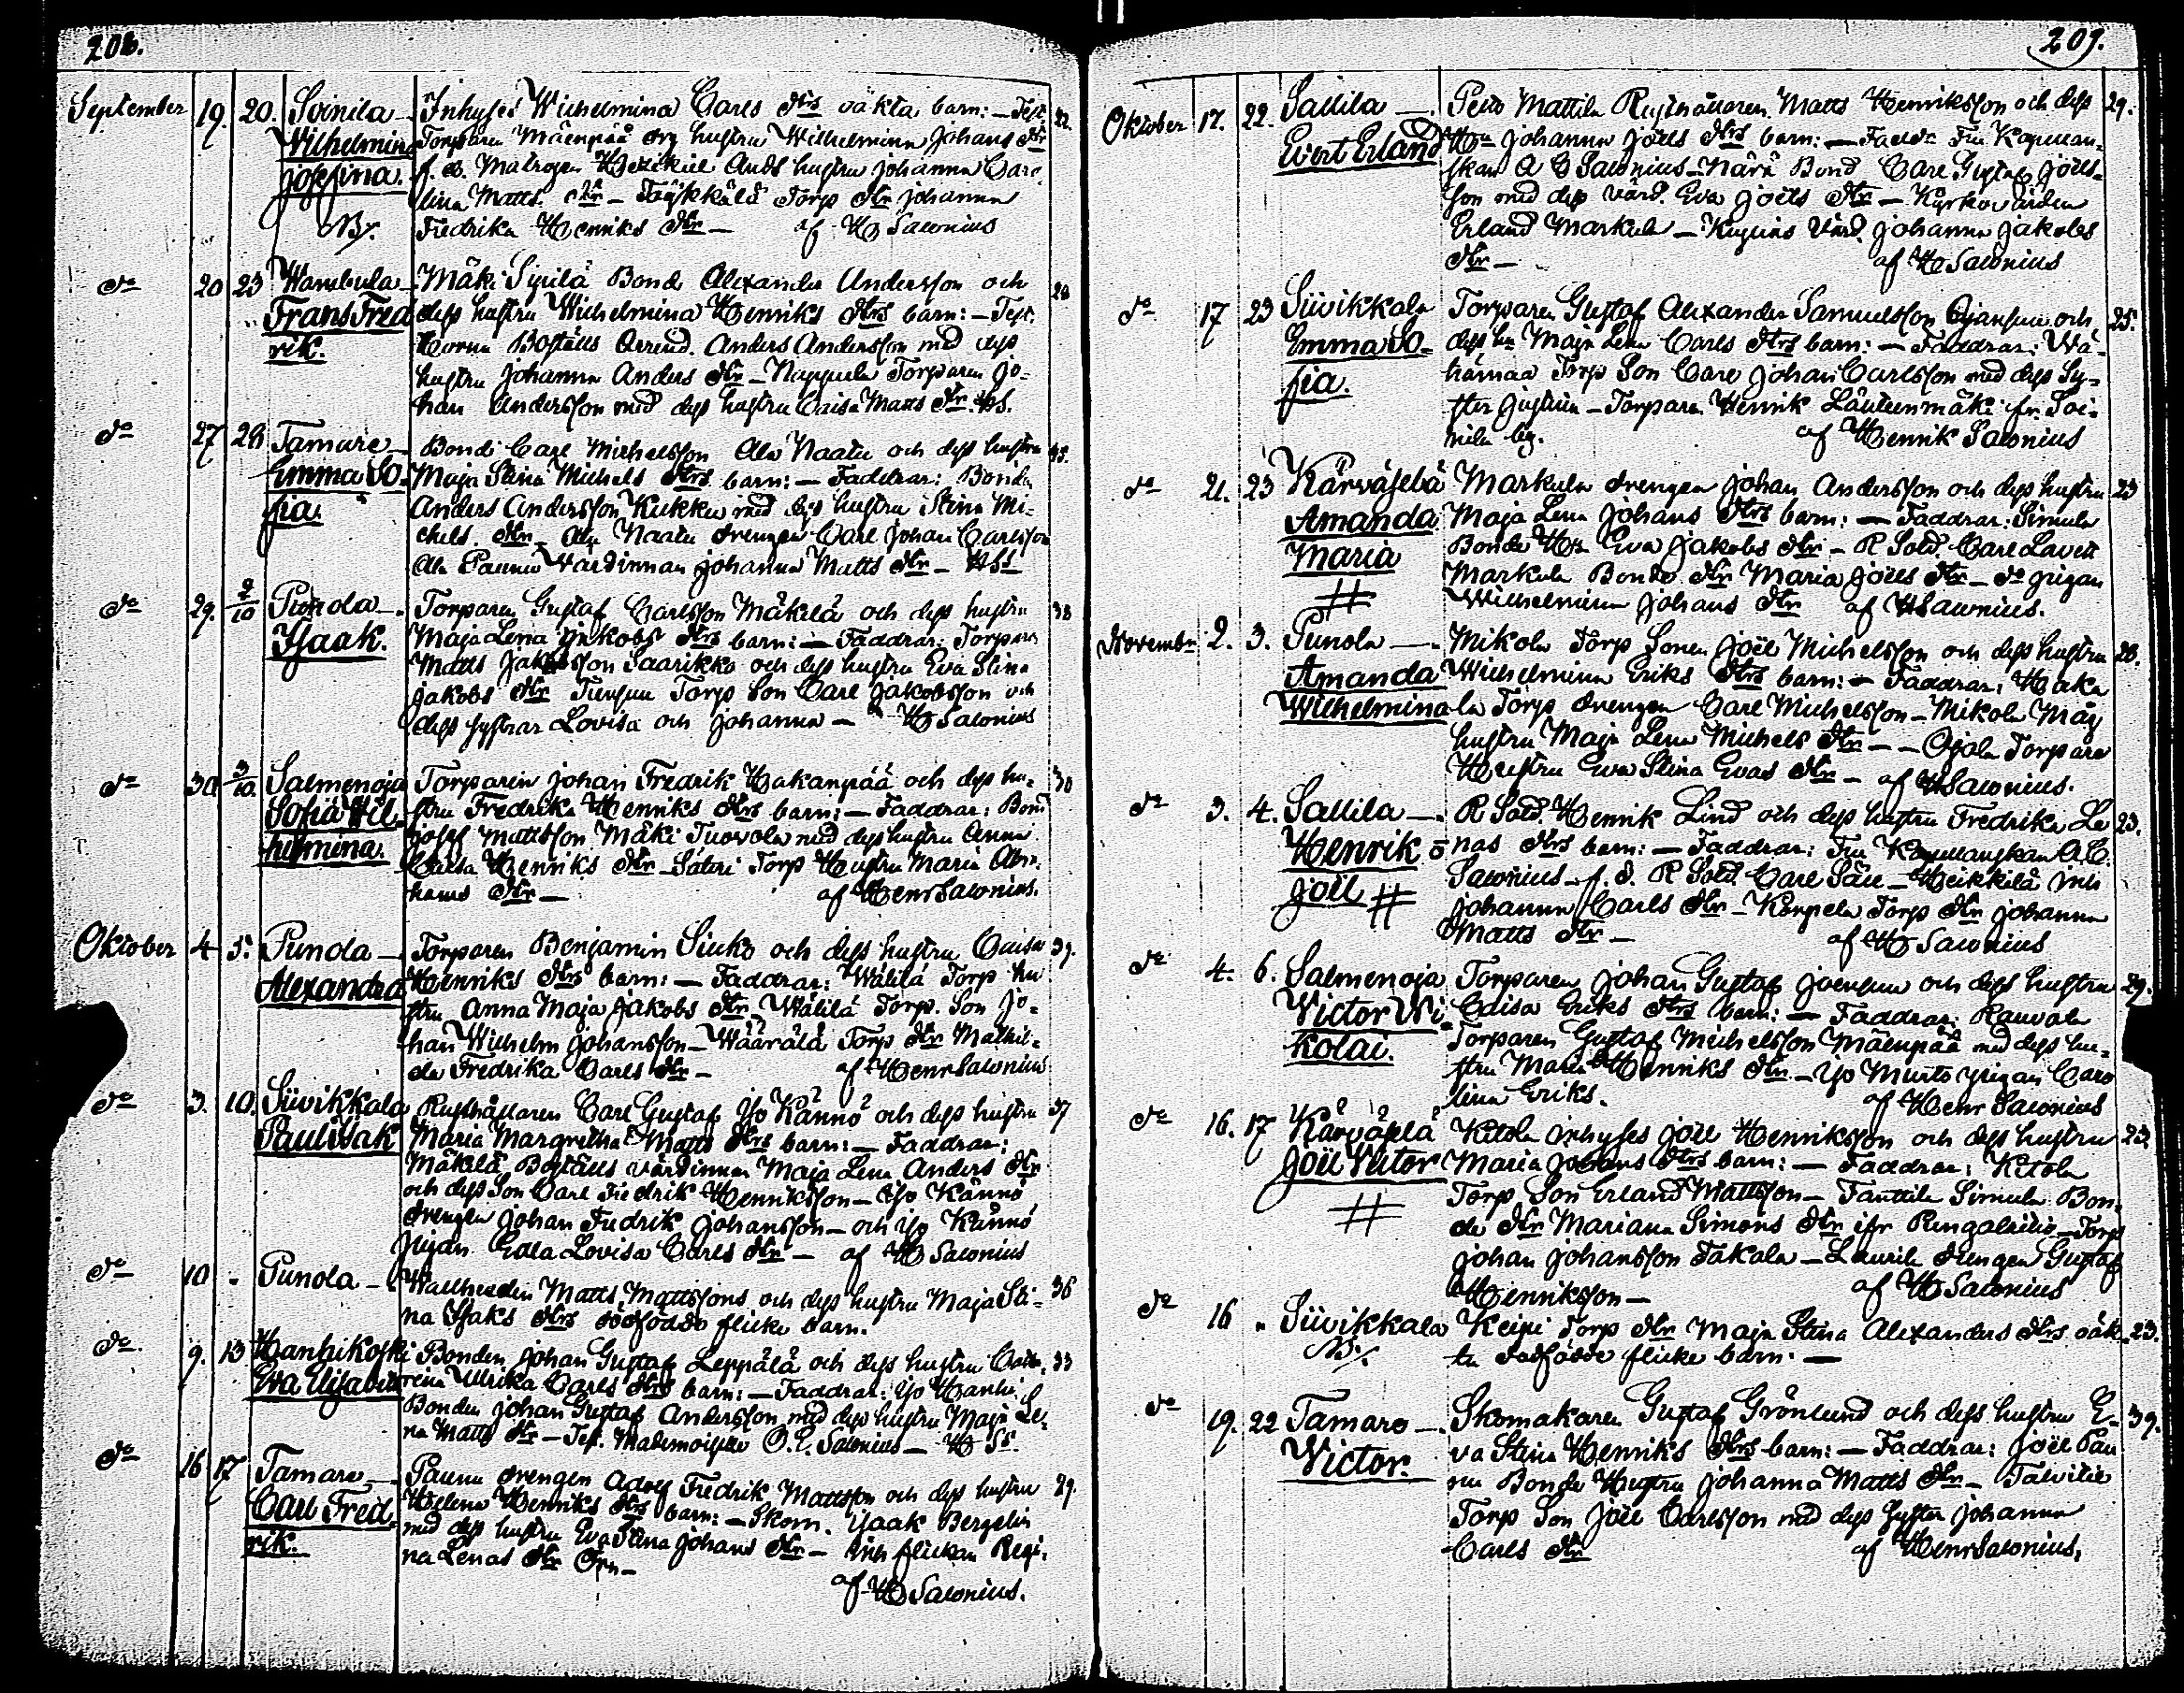 208.
September 19. 20. Soinila — Inhyses Wilhelmina Carls dtrs oäkta barn: — Test. 22.
Wilhelmina Torparen Mäenpää drg hustru Wilhelmina Johans dtr
Josefina. f. d. Matrosen Hezekiel Ands hustru Johanna Caro-
lina Matts dtr — Torp dtr Johanna
NB/. Fredrika Henriks dtr — af H Salonius
do 20 23 Wambula — Mäki Sipilä Bond Alexander Andersson och 28
Frans Fred dess hustru Wilhelmina Henriks dtrs barn: — Test.
rik. Boställs Arrend. Anders Andersson med dess
hustru Johanna Anders dtr — Nappula Torparen Jo-
han Andersson med dess hustru Caisa Matts dtr. HS.
do 27 28 Tamare — Bond Carl Michelsson Ala Naatu och dess hustru
Emma So- Maja Stina Michels dtrs barn: — Faddrar: Bonden
fia. Anders Andersson Kukku med dess hustru Stina Mi-
chels. dtr — Ala Naatu drengen Carl Johan Carlsson
Ala Paunu Wärdinnan Johanna Matts dtr — HSs
do 29. 2/10 Punola — Torparen Gustaf Carlsson Mäkilä och dess hustru 38
Isaak. Maja Lena Jakobs dtrs barn: — Faddrar: Torparen
Matts Jakobsson Saarikko och dess hustru Eva Stina
Jakobs dtr Torp Son Carl Jakobsson och
dess systrar Lovisa och Johanna — H Salonius
do 30 3/10. Salmenoja Torparen Johan Fredrik Hakanpää och dess hu- 30
Sofia Wil- stru Fredrika Henriks dtrs barn: — Faddrar: Bond
helmina. Josef Mattsson Mäki Tuovola med dess hustru Anna
Caisa Henriks dtr — Säteri Torp Hustru Maria Abra
hams dtr — af Henr Salonius.
Oktober 4 5. Punola — Torparen Benjamin Siuko och dess hustru Caisa 39.
Alexandra Henriks dtrs barn: — Faddrar: Wälilä Torp hu
stru Anna Maja Jakobs dtr — Wälilä Torp. Son Jo-
han Wilhelm Johansson — Wäärälä Torp dtr Mathil-
da Fredrika Carls dtr — af Henr Salonius
do 3. 10. Siivikkala Rusthållaren Carl Gustaf Yo Kännö och dess hustru 37
Paul Isak Maria Margretha Matts dtrs barn: — Faddrar:
Mäkilä Boställs värdinnan Maja Lena Anders dtr
och dess Son Carl Fredrik Henriksson — Yo Kännö
drengen Johan Fredrik Johansson — och Yo Kännö
pigan Edla Lovisa Carls dtr — af H Salonius
do 10 " Punola — Matts Mattssons och dess hustru Maja Sti- 36
na Isaks dtrs dödfödde flicke barn.
do 9. 13 Hanhikoski Bonden Johan Gustaf Leppälä och dess hustru Catha- 33
Eva Elisabeth rina Ulrika Carls dtrs barn: — Faddrar: Yo Hanhi
Bonden Johan Gustaf Andersson med dess hustru Maja Le-
na Matts dtr — Test. Mademoiselle O. E. Salonius — H Ss.
do 16 17 Tamare — Paunu drengen Adolf Fredrik Mattsson och dess hustru 29.
Carl Fred- Helena Henriks dtrs barn: — Skom. Isaak Bergelin
rik. med dess hustru Eva Stina Johans dtr — Inh flickan Regi-
na Lenas dtr —
af H Salonius.
209.
Oktober 17. 22. Sallila — Mattila Rusthållaren Matts Henriksson och dess 29.
Evert Erland Johanna Joëls dtrs barn: — Fru Kapellan-
skan A C Salonius — Närä Bond Carl Gustaf Joëls-
son med dess värd. Eva Joëls dtr — Kyrkovärden
Erland Markula — värd. Johanna Jakobs
dtr — af H Salonius
do 17 23 Siivikkala Torparen Gustaf Alexander Samuelsson Ojansuu och 25.
Emma So- dess hu Maja Lena Carls dtrs barn: — Faddrar: Wä-
fia. hämaa Torp Son Carl Johan Carlsson med dess Sy-
ster Gustava — Torparen Henrik Läuteenmäki fr. Soi-
nila by. af Henrik Salonius
do 21. 23 Kärväselä Markula drengen Johan Andersson och dess hustru 23
Amanda Maja Lena Johans dtrs barn: — Faddrar: Simula
Maria Bonde Hu Eva Jakobs dtr — R Sold. Carl Lavett
# Markula Bonde dtr Maria Joëls dtr — do pigan
Wilhelmina Johans dtr af H Salonius.
November 2. 3. Punola — Mikola Torp Sonen Joël Michelsson och dess hustru 28.
Amanda Wilhelmina Eriks dtrs barn: — Faddrar: Haka
Wilhelmina la Torp drengen Carl Michelsson — Mikola Måg
hustru Maja Lena Michels dtr — Ojala Torpare
Hustru Eva Stina Evas dtr — af H Salonius.
do 3. 4. Sallila — R Sold. Henrik Lind och dess hustru Fredrika Le 23.
Henrik nas dtrs barn: — Faddrar: Fru Kapellanskan A. C.
Joël # Salonius — f. d. R Sold. Carl Säll — Heikkilä Inh
Johanna Carls dtr — Korpela Torp dtr Johanna
Matts dtr — af H Salonius
do 4. 6. Salmenoja Torparen Johan Gustaf Joensuu och dess hustru 29.
Victor Ni- Caisa Eriks dtrs barn: — Faddrar: Rauvola
kolai. Torparen Gustaf Michelsson Mäenpää med dess hu-
stru Maria Henriks dtr — Yo Murto pigan Caro
lina Eriks. af Henr Salonius
do 16. 17 Kärväselä Kitola Inhyses Joël Henriksson och dess hustru 23.
Joël Victor Maria Johans dtrs barn: — Faddrar: Kitola
# Torp Son Erland Mattsson — Tanttila Simula Bon-
de dtr Mariana Simons dtr ifr — Torp
Johan Johansson Takala — Laurila drengen Gustaf
Henriksson — af H Salonius
do 16 " Siivikkala Keipi Torp dtr Maja Stina Alexanders dtrs oäk- 23.
NB/. ta dödfödde flicke barn. —
do 19. 22 Tamare — Skomakaren Gustaf Grönlund och dess hustru E- 39.
Victor. va Stina Henriks dtrs barn: — Faddrar: Joël Pau
nu Bonde Hustru Johanna Matts dtr — Talvitie
Torp Son Joël Carlsson med dess Syster Johanna
Carls dtr af Henr Salonius.